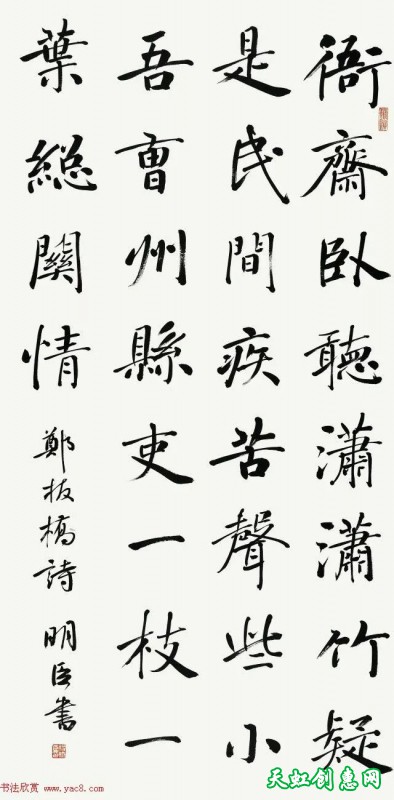 衙齋臥聽瀟瀟竹疑
是民間疾苦聲些小
吾曹州縣吏一枝一
葉總關情
鄭板橋詩 明臣書
书法欣赏 www.yac8.com
天虹创惠网